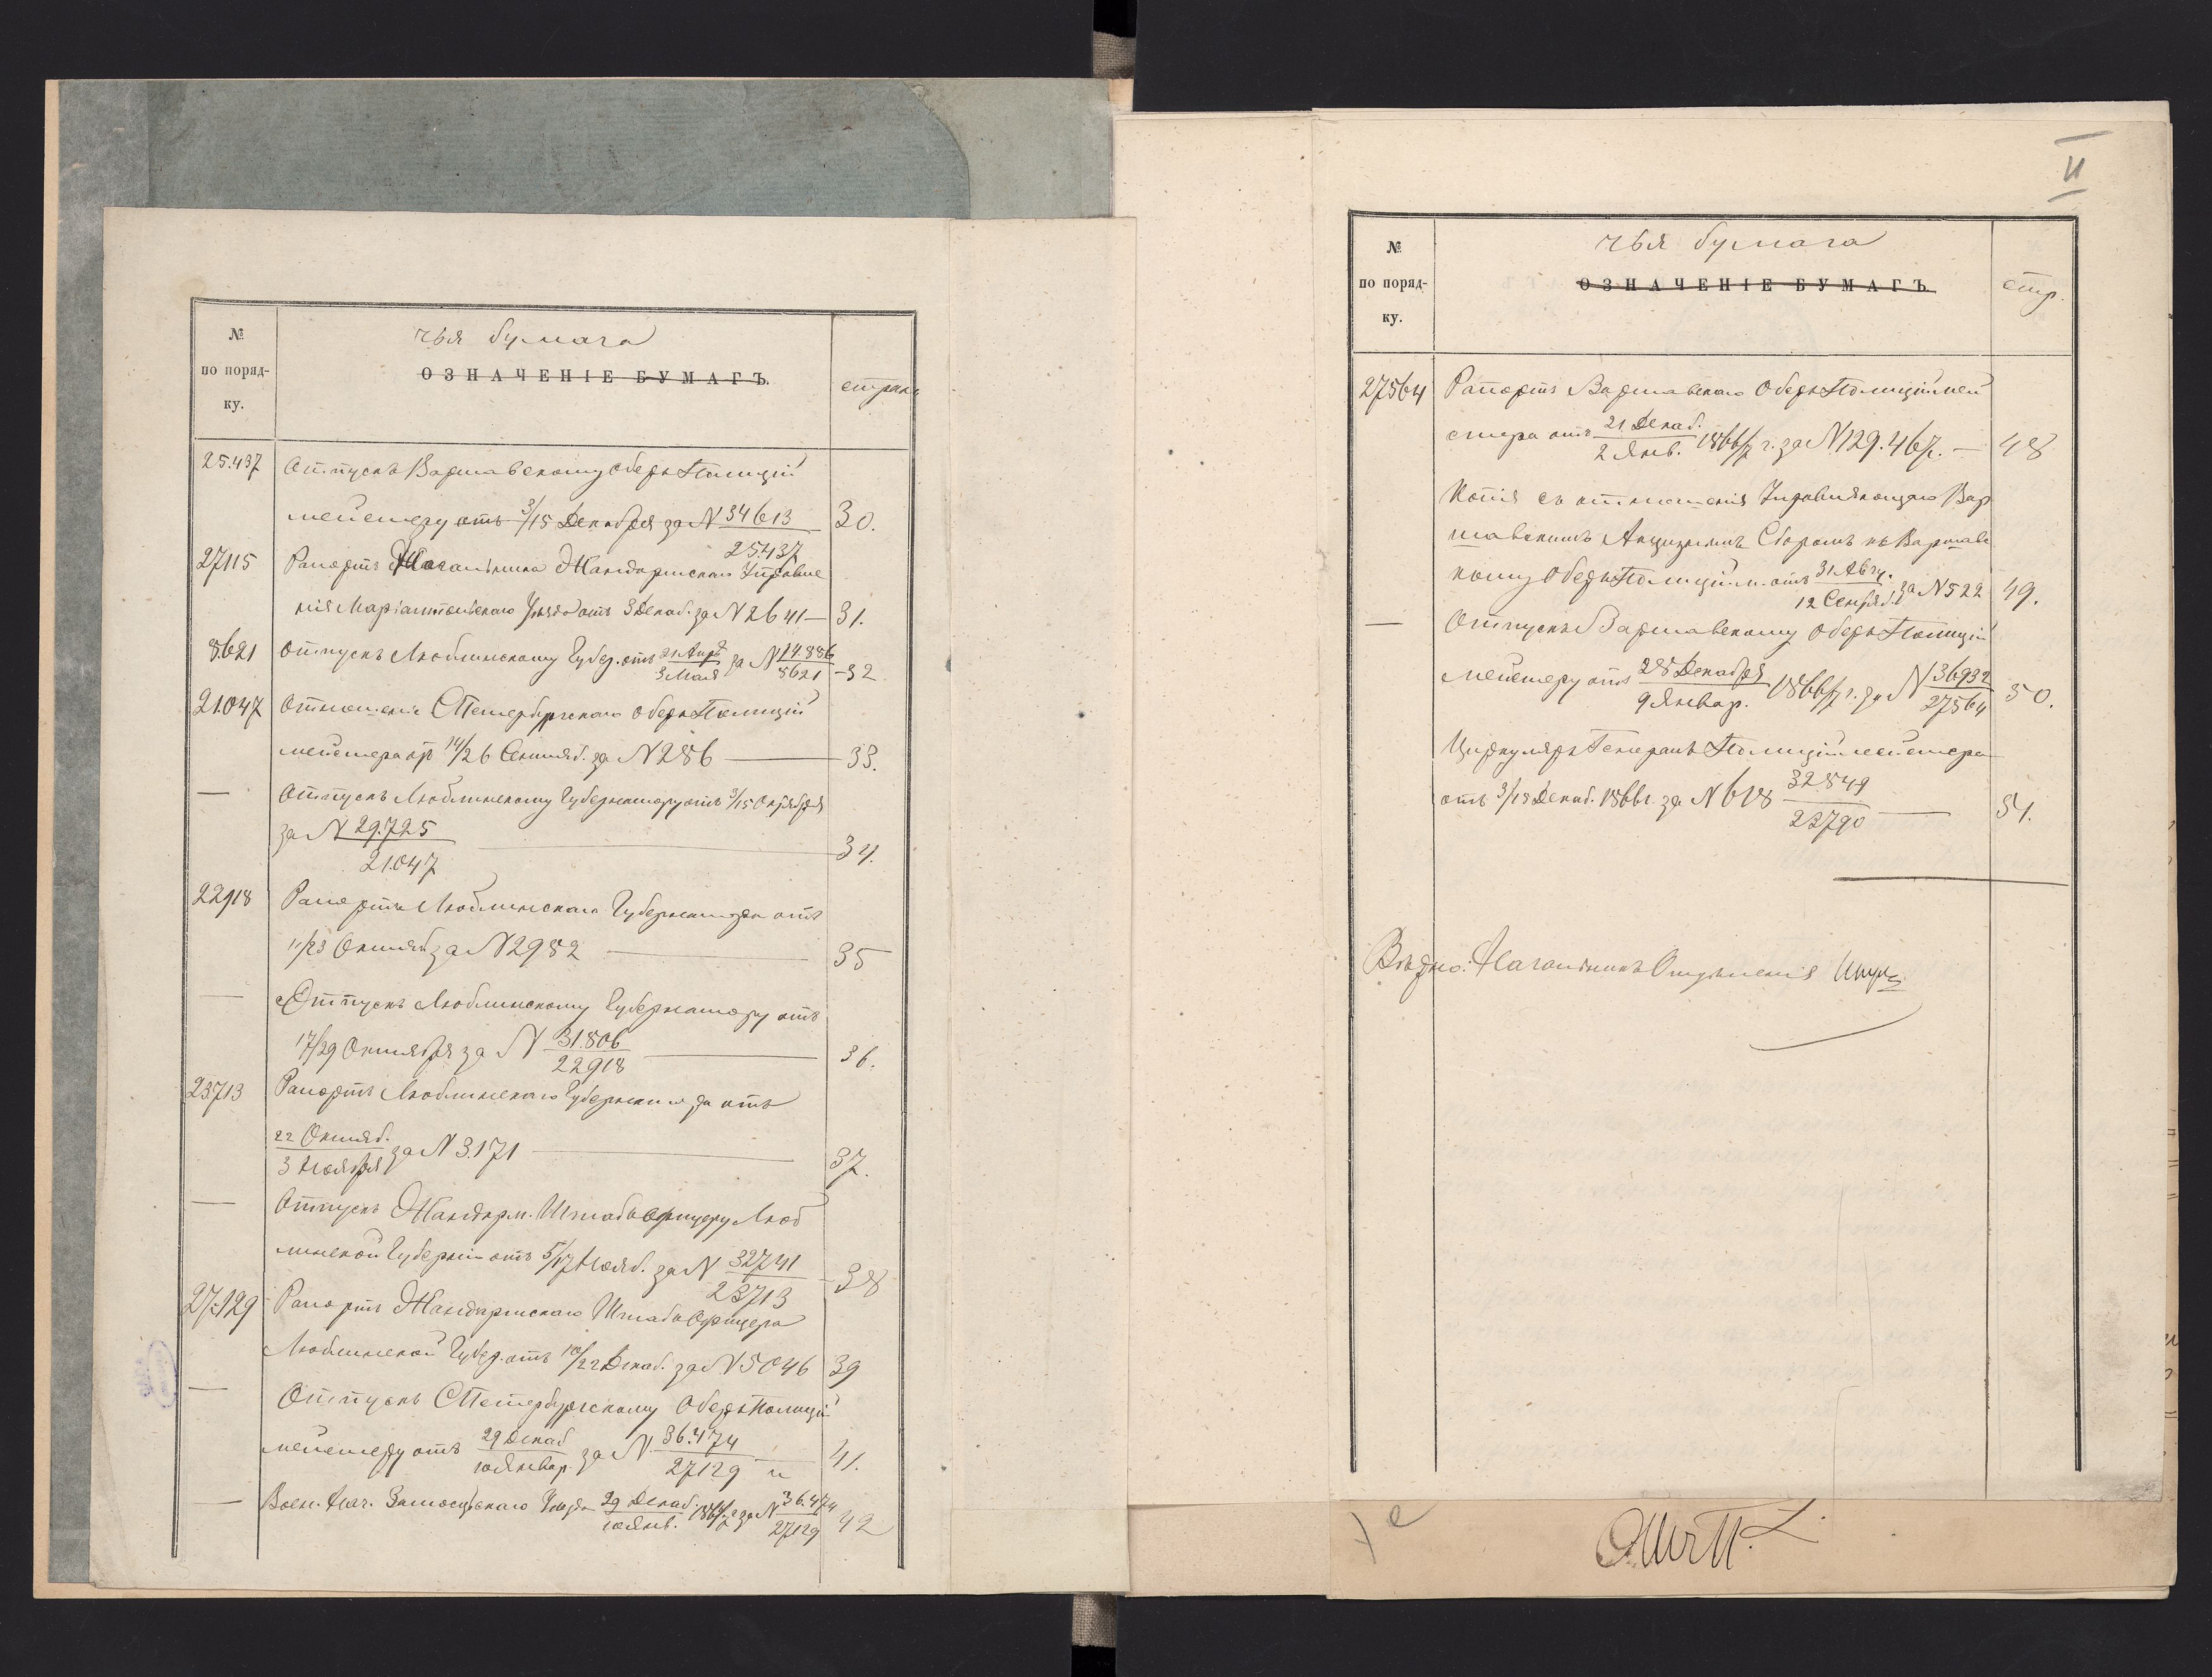 №
по поряд-
ку.
чья бумага
ОЗНАЧЕНІЕ БУМАГЪ.
25.437 Отпускъ Варшавскому Оберъ Полицій
мейстеру отъ 3/15 Декабря за N 34613 30.
25437
27115 Рапортъ Начальника Жандармскаго Управле
нія Маріампольскаго Уѣзда отъ 3 Декаб. за N 2641 — 31.
8.621 Отпускъ Люблинскому Губер. отъ 21 Апр / 3 Мая за N 14.886 / 8621 — 32
21.047 Отношеніе СПетербургскаго Оберъ Полицій
мейстера отъ 14/26 Сентяб. за N 286 — 33.
— Отпускъ Люблинскому Губернатору отъ 3/15 Октября
за N 29.725
21.047 34.
22918 Рапортъ Люблинскаго Губернатора отъ
11/23 Октяб за N 2982 — 35
— Отпускъ Люблинскому Губернатору отъ
17/29 Октября за N 31.806 / 22918 — 36.
23713 Рапортъ Люблинскаго Губернатора отъ
22 Октяб. / 3 Ноября за N 3.171 — 37.
— Отпускъ Жандарм. Штабъ Офицеру Люб
линской Губерніи отъ 5/17 Нояб. за N 32741 / 23713 — 38
27.129 Рапортъ Жандармскаго Штабъ Офицера
Люблинской Губер. отъ 10/22 Декаб. за N 5046 39
— Отпускъ СПетербургскому Оберъ Полицій
мейстеру отъ 29 Декаб / 10 Январ. за N 36.474 / 27129 и 41.
— Воен. Нач. Замосцскаго Уѣзда 29 Декаб. / 10 Янв. 1866/7 г за N 36.474 / 27129 42
II
№
по поряд-
ку.
чья бумага
ОЗНАЧЕНІЕ БУМАГЪ.
стр.
27564 Рапортъ Варшавскаго Оберъ Полиціймей
стера отъ 21 Декаб. / 2 Янв. 1866/7 г. за N 129.467. — 48
Копія съ отношенія Управляющаго Вар
шавскимъ Акцизнымъ Сборомъ къ Варшавс
кому Оберъ Полиційм. отъ 31 Авгу. / 12 Сентяб. за N 522 49.
— Отпускъ Варшавскому Оберъ Полицій
мейстеру отъ 28 Декабря / 9 Январ. 1866/7 г. за N 36932 / 27564 50.
Циркуляръ Генералъ Полиціймейстера
отъ 3/15 Декаб. 1866 г. за N 618 32849 / 22790 — 51.
Вѣрно: Начальникъ Отдѣленія